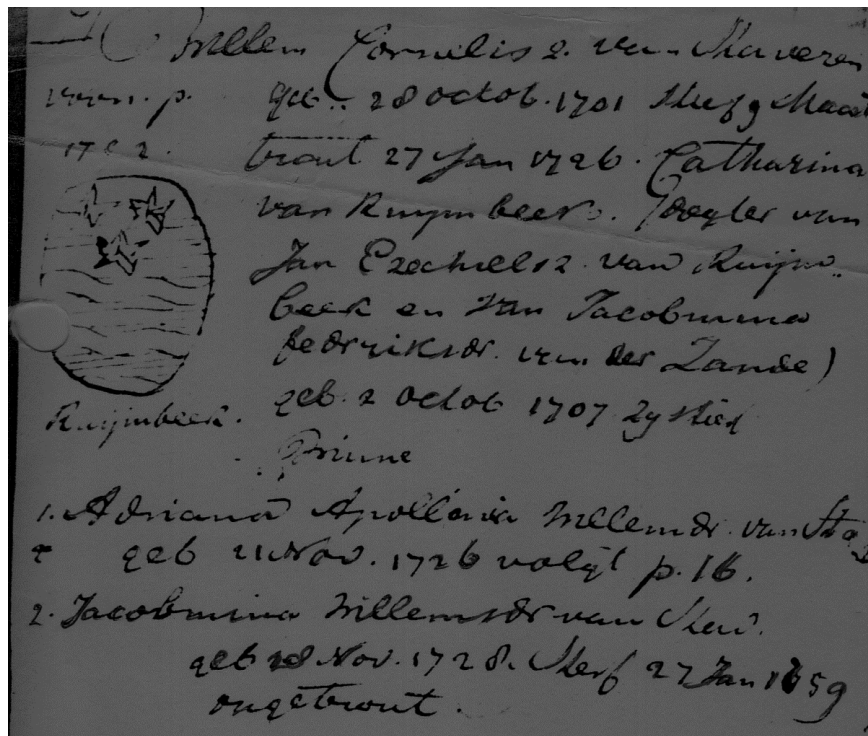 Willem Cornelis z. van Staveren
voorn. p. geb. 28 octob. 1701 Sterf 9 Maart
17 2. trout 27 Jan 1726. Catharina
van Ruijmbeek. Dogter van
Jan Ezechiels z. van Ruijm„
beek en van Jacobmina
fedriksdr. van der Zande)
geb. 2 octob 1707 Zy Stierf
Ruijmbeek.
1. Adriana Apollonia Willemdr. van Sta
geb 21 Nov. 1726 volgt p. 16.
2. Jacobmina Willemsdr van Stav.
geb 28 Nov. 1728. Sterf 27 Jan 59
ongetrout.